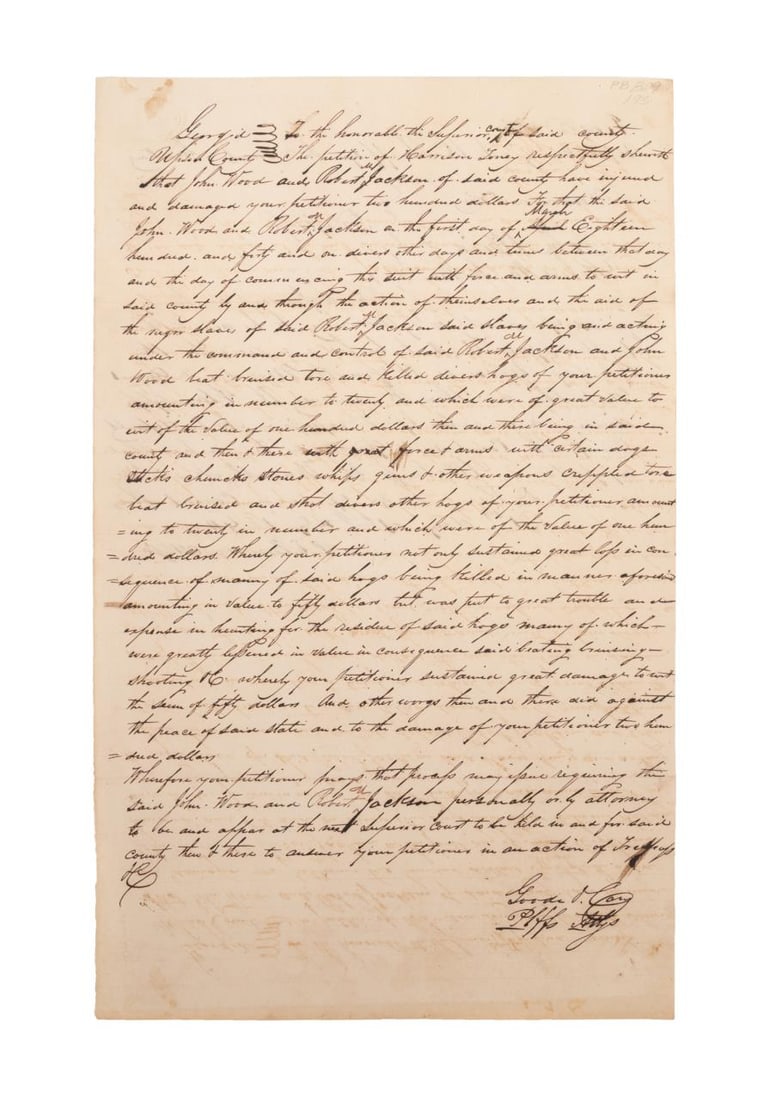 PB 809
193
Georgia To the honorable the Superior court of said county
Upson County The petition of Harrison Toney respectfully sheweth
that John Wood and Robert M Jackson of said county have injured
and damaged your petitioner two hundred dollars For that the said
John Wood and Robert M Jackson on the first day of March Eighteen
hundred and forty and on divers other days and times between that day
and the day of commencing this suit with force and arms to wit in
said county by and through the action of themselves and the aid of
the negro slaves of said Robert M Jackson said slaves being and acting
under the command and control of said Robert M Jackson and John
Wood beat bruised tore and killed divers hogs of your petitioner
amounting in number to twenty and which were of great value to
wit of the value of one hundred dollars then and there being in said
county and then & there with force & arms with certain dogs
sticks chuncks stones whips guns & other weapons crippled tore
beat bruised and shot divers other hogs of your petitioner amount
=ing to twenty in number and which were of the value of one hun
=dred dollars. Whereby your petitioner not only sustained great loss in con
=sequence of manny of said hogs being killed in manner aforesaid
amounting in value to fifty dollars but was put to great trouble and
expense in hunting for the residue of said hogs many of which
were greatly lessened in value in consequence said beating bruising
shooting &C whereby your petitioner sustained great damage to wit
the sum of fifty dollars. And other wrongs then and there did against
the peace of said state and to the damage of your petitioner two hun
=dred dollars
Wherefore your petitioner prays that process may issue requiring the
said John Wood and Robert M Jackson personally or by attorney
to be and appear at the next Superior court to be held in and for said
county then & there to answer your petitioner in an action of Trespass
&C
Goode &
Plffs Attys